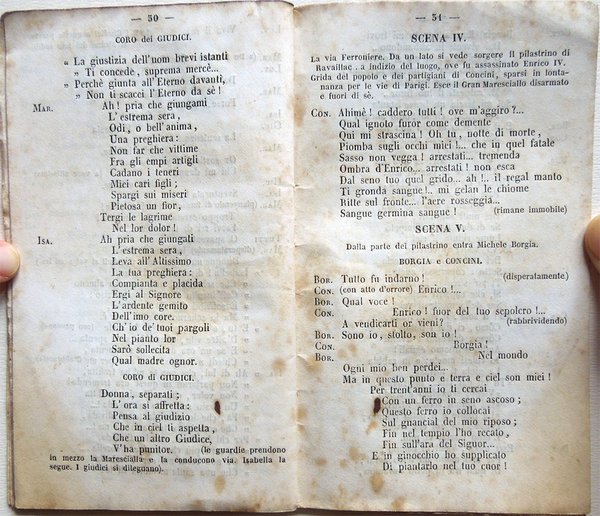 — 50 —
CORO dei GIUDICI.
„ La giustizia dell'uom brevi istanti
„ Ti concede, suprema mercè...
„ Perchè giunta all'Eterno davanti,
„ Non ti scacci l'Eterno da sè!
MAR. Ah! pria che giungami
L'estrema sera,
Odi, o bell'anima,
Una preghiera:
Non far che vittime
Fra gli empi artigli
Cadano i teneri
Miei cari figli;
Spargi sui miseri
Pietosa un fior,
Tergi le lagrime
Nel lor dolor!
ISA. Ah pria che giungati
L'estrema sera,
Leva all'Altissimo
La tua preghiera:
Compianta e placida
Ergi al Signore
L'ardente gemito
Dell'imo core.
Ch'io de' tuoi pargoli
Nel pianto lor
Sarò sollecita
Qual madre ognor.
CORO di GIUDICI.
Donna, separati;
L'ora si affretta:
Pensa al giudizio
Che in ciel ti aspetta,
Che un altro Giudice,
V'ha punitor. (le guardie prendono
in mezzo la Marescialla e la conducono via. Isabella la
segue. I giudici si dileguano).
— 51 —
SCENA IV.
La via Ferroniere. Da un lato si vede sorgere il pilastrino di
Ravaillac, a indizio del luogo, ove fu assassinato Enrico IV.
Grida del popolo e dei partigiani di Concini, sparsi in lonta-
nanza per le vie di Parigi. Esce il Gran Maresciallo disarmato
e fuori di sè.
CON. Ahimè! caddero tutti! ove m'aggiro?...
Qual ignoto furor come demente
Qui mi strascina! Oh tu, notte di morte,
Piomba sugli occhi miei!... che in quel fatale
Sasso non vegga! arrestati... tremenda
Ombra d'Enrico... arrestati! non esca
Dal seno tuo quel grido... ah!... il regal manto
Ti gronda sangue!... mi gelan le chiome
Ritte sul fronte... l'aere rosseggia...
Sangue germina sangue! (rimane immobile)
SCENA V.
Dalla parte del pilastrino entra Michele Borgia.
BORGIA e CONCINI.
BOR. Tutto fu indarno! (disperatamente)
CON. (con atto d'orrore) Enrico!...
BOR. Qual voce!
CON. Enrico! fuor del tuo sepolcro!...
A vendicarti or vieni? (rabbrividendo)
BOR. Sono io, stolto, son io!
CON. Borgia!
BOR. Nel mondo
Ogni mio ben perdei..
Ma in questo punto e terra e ciel son miei!
Per trent'anni io ti cercai
Con un ferro in seno ascoso;
Questo ferro io collocai
Sul guancial del mio riposo;
Fin nel tempio l'ho recato,
Fin sull'ara del Signor...
E in ginocchio ho supplicato
Di piantarlo nel tuo cuor!